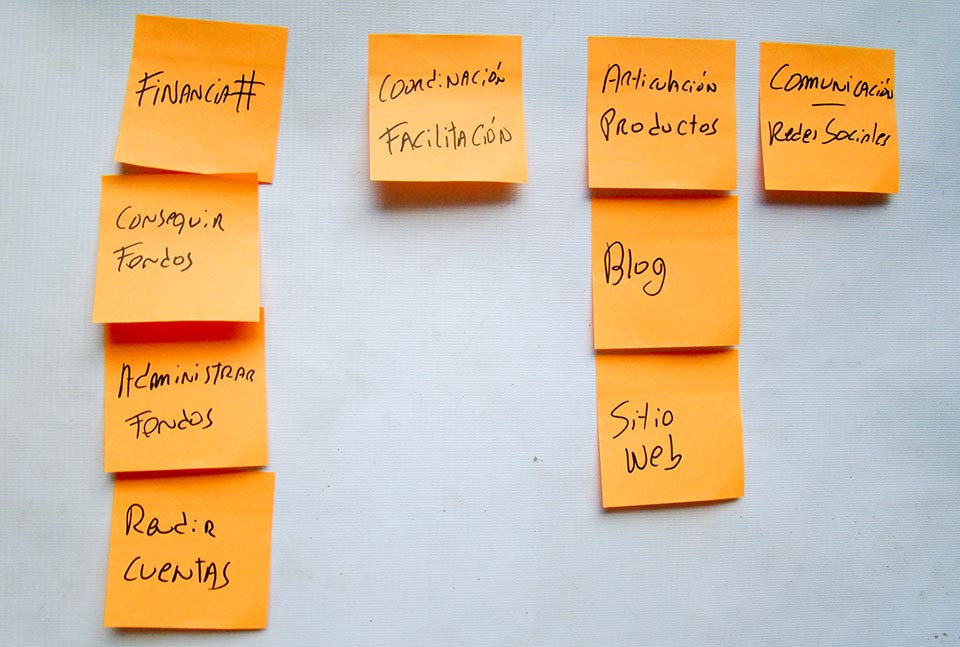 Financia#
Conseguir
Fondos
Administrar
Fondos
Rendir
Cuentas
Coordinación
Facilitación
Articulación
Productos
Blog
Sitio
Web
Comunicación
Redes Sociales